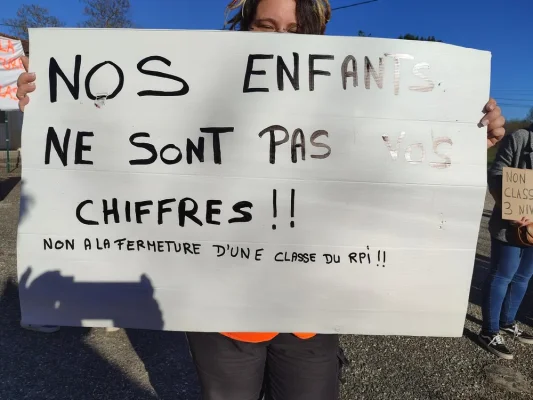 NOS ENFANTS
NE SONT PAS VOS
CHIFFRES !!
NON A LA FERMETURE D'UNE CLASSE DU RPi !!
NON
CLASS
3 NIV